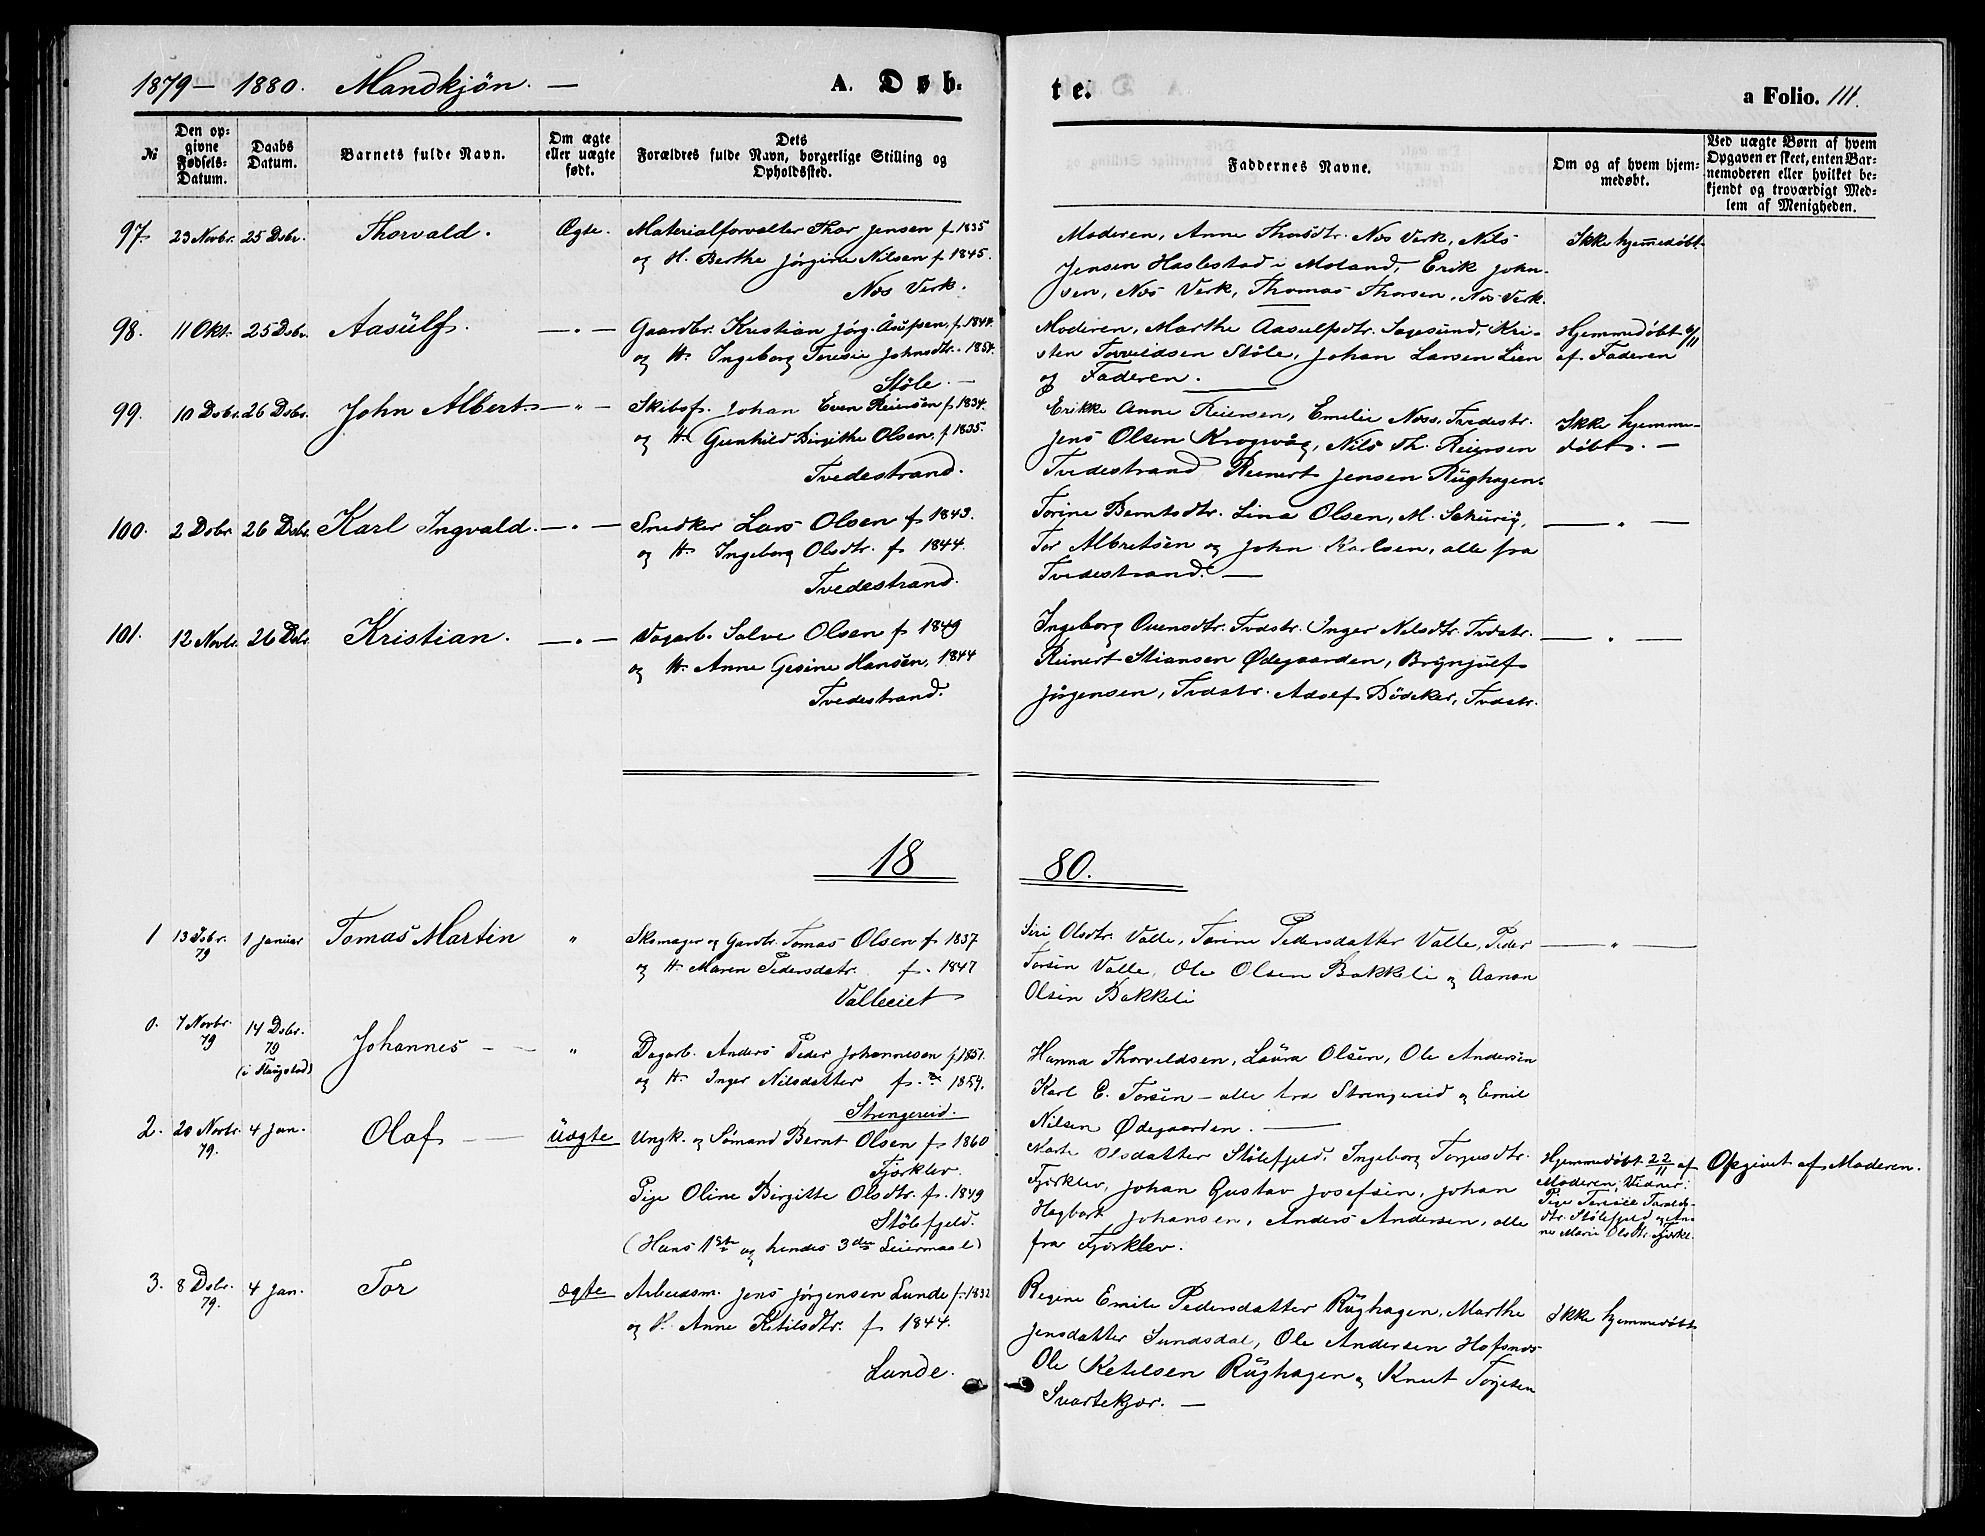 1879 – 1880. Mandkjøn. —
A. Døb-
te.
a Folio. 111.
№
Den op-
givne
Fødsels-
Datum.
Daabs
Datum.
Barnets fulde Navn.
Om ægte
eller uægte
født.
Dets
Forældres fulde Navn, borgerlige Stilling og
Opholdssted.
Faddernes Navne.
Om og af hvem hjem-
medøbt.
Ved uægte Børn af hvem
Opgaven er skeet, enten Bar-
nemoderen eller hvilket be-
kjendt og troværdigt Med-
lem af Menigheden.
97. 23 Novbr. 25 Dsbr. Thorvald. Ægte. Materialforvalter Thor Jensen f 1835
og H. Berthe Jörgine Nilsen f. 1845.
Nœs Verk.
Moderen, Anne Thorsdtr. Nœs Verk, Nils
Jensen Haslestad i Moland, Erik John-
sen, Nœs Verk, Thomas Thorsen, Nœs Verk.
Ikke hjemmedøbt
98. 11 Okt. 25 Dsbr. Aasulf. — " — Gaardbr. Kristian Jörg. Åsufsen, f. 1844.
og H. Ingeborg Teresie Johnsdtr. 1854.
Stöle. —
Moderen, Marthe Aasulfsdtr. Sagesund, Kri-
sten Torvildsen Stöle, Johan Larsen Lien
og Faderen.
Hjemmedøbt 6/11
af Faderen
99. 10 Dsbr. 26 Dsbr. John Albert. — " — Skibsf. Johan Even Reiersen f 1834.
og H. Gunhild Birgithe Olsen, f 1835.
Tvedestrand.
Erikke Anne Reiersen, Emilie Nœss, Tvedestr.
Jens Olsen Krogvåg, Nils Th. Reiersen
Tvedestrand Reinert Jensen Rughagen.
Ikke hjemme-
døbt. —
100. 2 Dsbr. 26 Dsbr. Karl Ingvald. — " — Snedker Lars Olsen f 1843.
og H. Ingeborg Olsdtr. f 1844.
Tvedestrand.
Torine Berntsdtr. Lina Olsen, M. Schurig,
Tor Albretsen og John Karlsen, alle fra
Tvedestrand. —
— " —
101. 12 Novbr. 26 Dsbr Kristian. — " — Dagarb. Salve Olsen f 1849
og H. Anne Gesine Hansen, 1844
Tvedestrand.
Ingeborg Ovensdtr. Tvdstr. Inger Nilsdtr. Tvdstr.
Reinert Stiansen Ødegaarden, Brynjulf
Jörgensen, Tvdstr. Adolf Bödeker, Tvdstr.
— " —
18
80.
1 13 Dsbr. 79 1 Januar Tomas Martin " Skomager og Gardbr. Tomas Olsen f 1837
og H. Maren Pedersdatr. f. 1847
Valleeiet
Siri Olsdtr. Valle, Torine Pedersdatter Valle, Peder
Torsen Valle, Ole Olsen Bakkeli og Aanon
Olsen Bakkeli
— " —
0. 7 Novbr. 79 14 Dsbr. 79 Johannes — — " Dagarb. Anders Peder Johannesen f 1851.
og H. Inger Nilsdatter f. 1854.
Strengereid.
Hanna Thorvildsen, Laura Olsen, Ole Andersen
Karl E. Torsen – alle fra Strengereid og Emil
Nilsen Ødegaarden. —
2. 20 Novbr. 79. 4 Jan. Olaf — — Uægte Ungk. og Sömand Bernt Olsen f 1860
Fjorklev.
Pige Oline Birgitte Olsdtr. f. 1849
Stölefjeld.
(Hans 1ste og hendes 3die Leiermaal)
Marte Olsdatter Stölefjeld, Ingeborg Torjusdtr.
Fjorklev, Johan Gustav Josefsen, Johan
Hagbart Johansen, Anders Andersen, alle
fra Fjorklev.
Hjemmedøbt 22/11 af
Moderen, Vidner:
Pige Teresie Taralds-
dtr. Stölefjeld og An-
ne Marie Olsdtr. Fjorkl.
Opgivet af Moderen.
3. 8 Dsbr. 79. 4 Jan. Tor ægte Arbeidsm. Jens Jörgensen Lunde f. 1832
og H. Anne Ketilsdtr. f 1844.
Lunde.
Regine Emilie Pedersdatter Rughagen, Marthe
Jensdatter Sundsdal, Ole Andersen Hofsnœs
Ole Ketelsen Rughagen og Knut Torjesen
Svartekjœr. —
Ikke hjemmedøbt